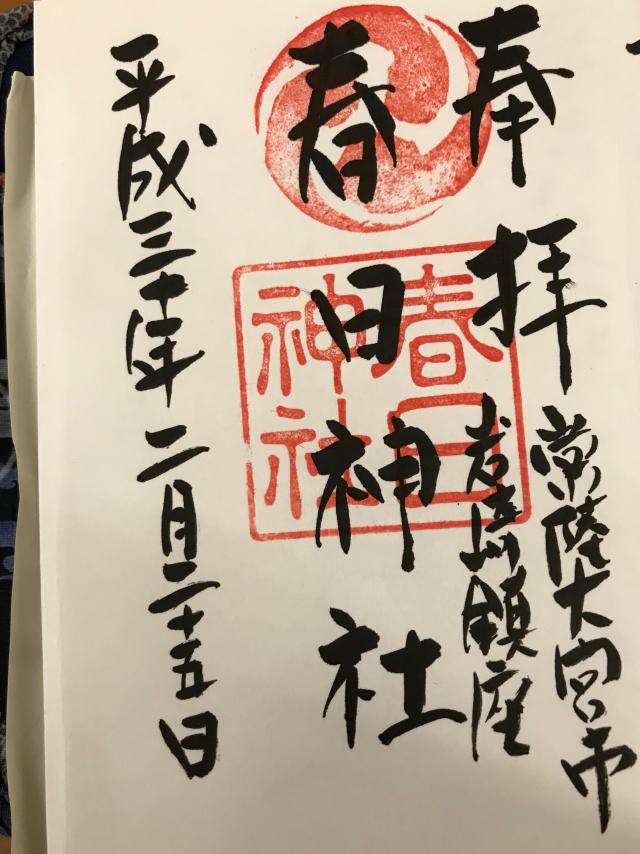 奉拝
常陸大宮市
鎮座
春日神社
春日
神社
平成三十年二月二十五日